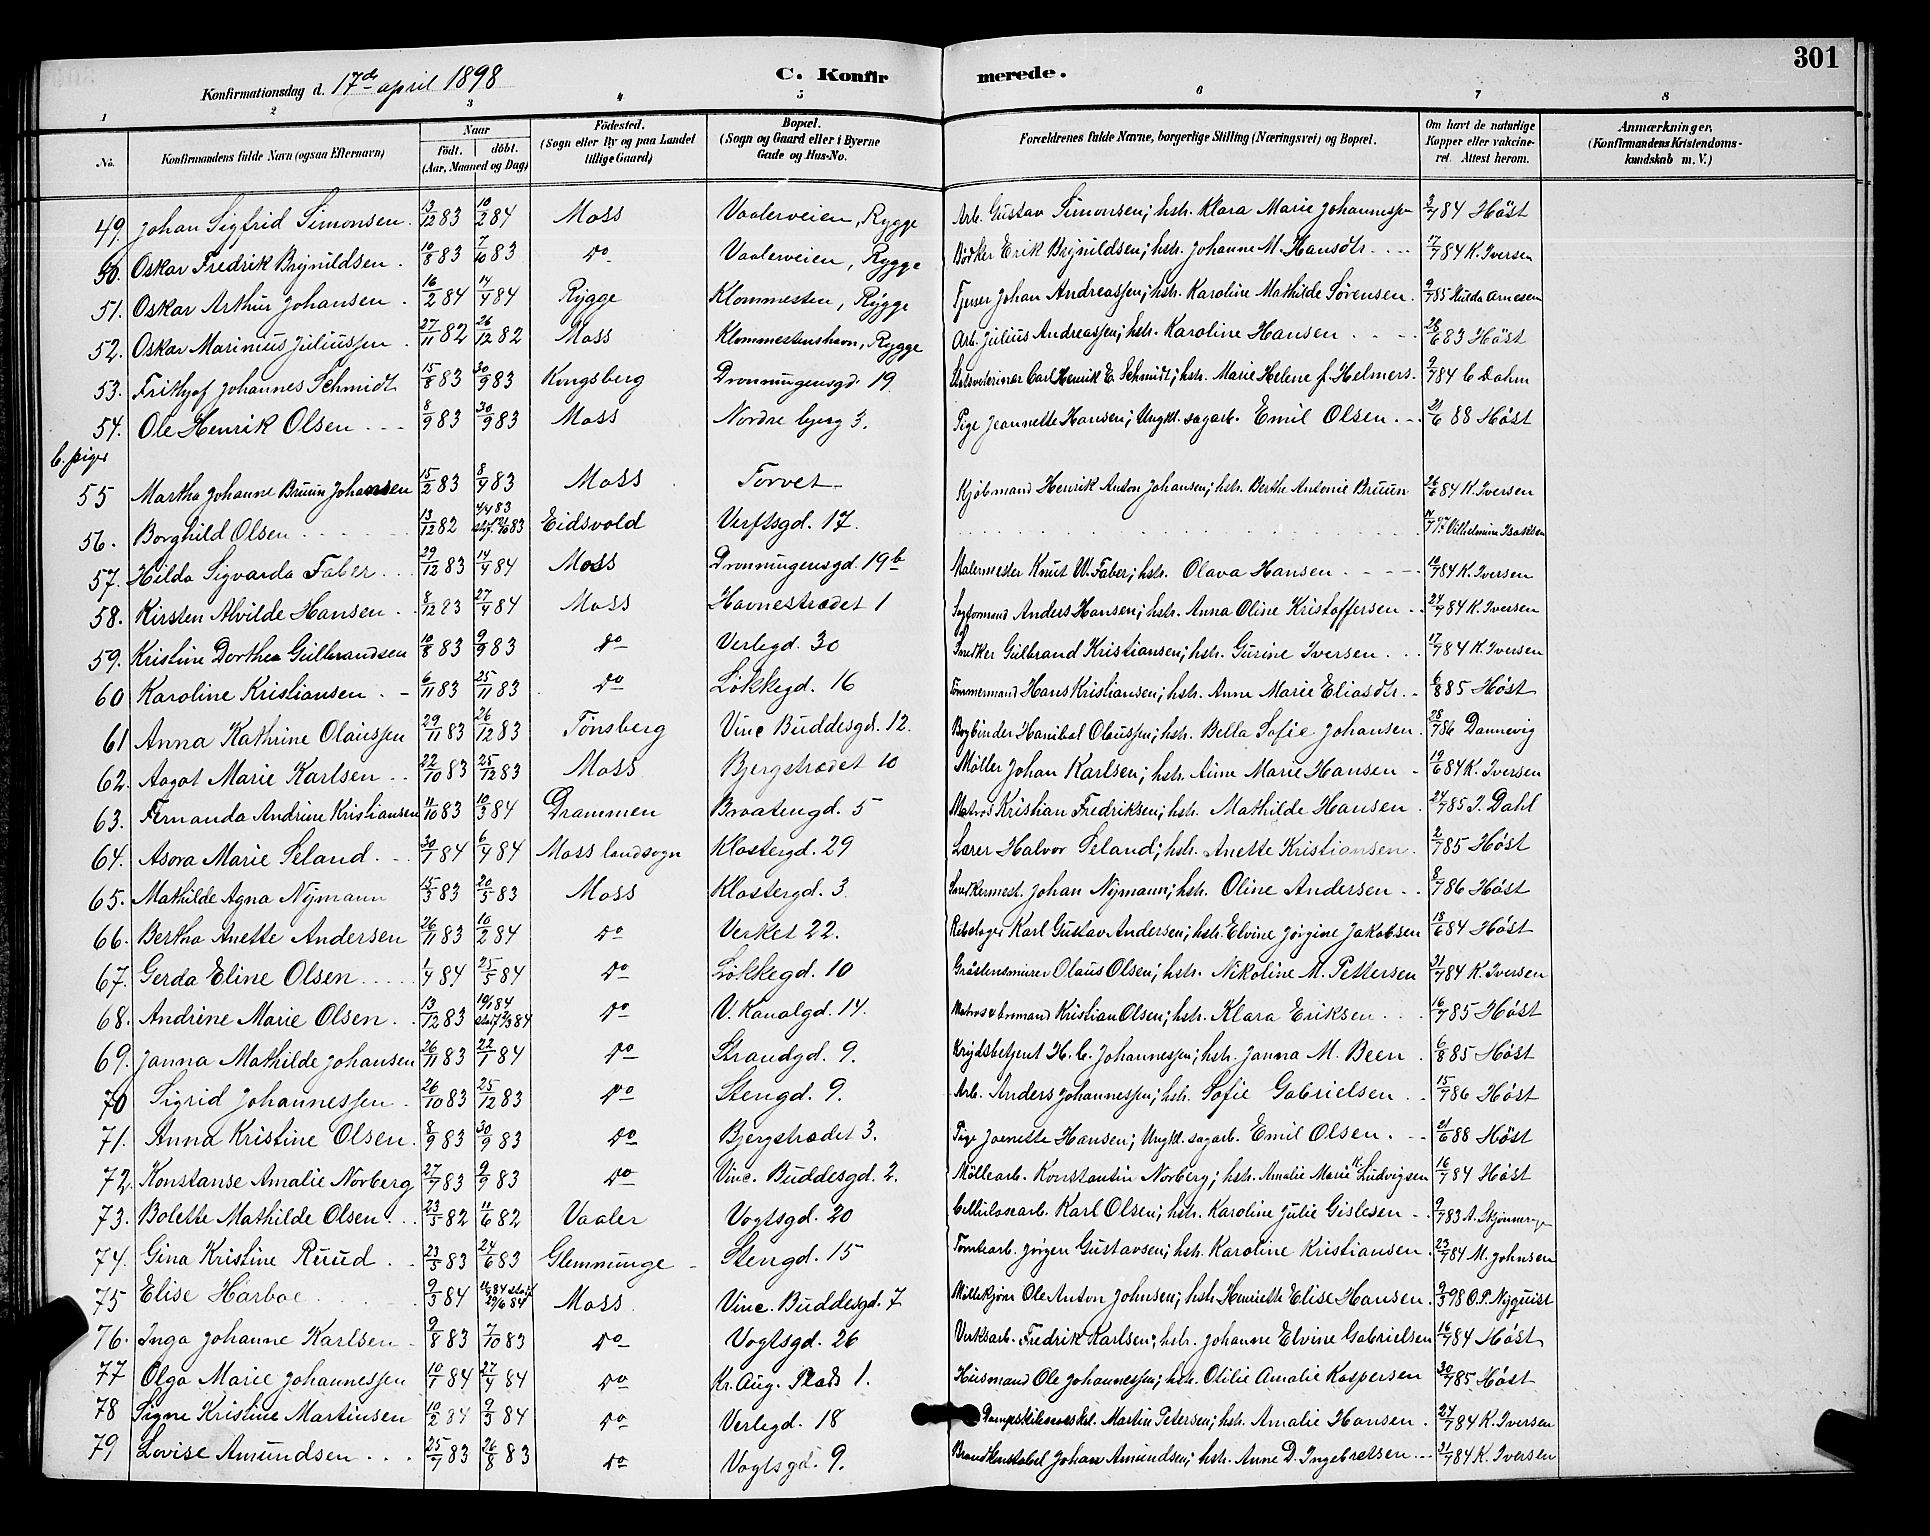 301
Konfirmationsdag d. 17de april 1898 C. Konfirmerede.
1 2 3 4 5 6 7 8
No. Konfirmandens fulde Navn (ogsaa Efternavn) Naar födt. döbt. (Aar, Maaned og Dag) Födested. (Sogn eller By og paa Landet tillige Gaard) Bopæl. (Sogn og Gaard eller i Byerne Gade og Hus-No. Forældrenes fulde Navne, borgerlige Stilling (Næringsvei) og Bopæl. Om havt de naturlige Kopper eller vakcineret. Attest herom. Anmærkninger. (Konfirmandens Kristendomskundskab m. V.)
49. Johan Sigfrid Simonsen. 13/12 83 10/2 84 Moss Vaalerveien, Rygge Arb. Gustav Simonsen; hstr. Klara Marie Johannessen 3/7 84 Höst
50. Oskar Fredrik Brynildsen. 10/8 83 7/10 83 Do Vaalerveien, Rygge Bödker Erik Brynildsen; hstr. Johanne M. Hansdtr. 17/7 84 K. Iversen
51. Oskar Arthur Johansen. 16/2 84 14/4 84 Rygge Klommesten, Rygge Johan Andreassen; hstr. Karoline Mathilde Sörensen. 9/7 85 Hulda Arnesen
52. Oskar Marinius Juliussen. 27/11 82 26/12 82 Moss Klommestenshavn, Rygge Arb. Julius Andreassen; hstr. Karoline Hansen 28/6 83 Höst
53. Frithjof Johannes Schmidt 15/8 83 30/9 83 Kongsberg Dronningensgd. 19 Carl Henrik E. Schmidt; hstr. Marie Helene f. Helmers. 9/7 84 C Dahm
54. Ole Henrik Olsen 8/9 83 30/9 83 Moss Nordre bjerg 3. Pige Jeannette Hansen; Ungkl. sagarb. Emil Olsen 21/6 88 Höst
b. piger
55 Martha Johanne Bruun Johansen 15/2 83 8/4 83 Moss Torvet Kjöbmand Henrik Anton Johansen; hstr. Berthe Antonie Bruun 26/6 84 K. Iversen
56. Borghild Olsen 13/12 82 4/4 83 Eidsvold Verftsgd. 17. Vilhelmine Isaksen
57. Hilda Sigvarda Faber 29/12 83 14/4 84 Moss Dronningensgd. 19b Malermester Knut W. Faber; hstr. Olava Hansen 10/7 84 K. Iversen
58. Kirsten Alvilde Hansen 8/12 83 27/4 84 Moss Havnestrædet 1 Sagformand Anders Hansen; hstr. Anna Oline Kristoffersen 24/7 84 K. Iversen
59. Kristine Dorthea Gulbrandsen 10/8 83 9/9 83 Do Verlegd. 30 Snedker Gulbrand Kristiansen; hstr. Gurine Iversen 17/7 84 K. Iversen
60 Karoline Kristiansen 6/11 83 25/11 83 Do Lökkegd. 16 Tömmermand Hans Kristiansen; hstr. Anne Marie Eliasdtr. 6/8 85 Höst
61 Anna Kathrine Olaussen 29/11 83 26/12 83 Tönsberg Vinc Buddesgd. 12. Bogbinder Hanibal Olaussen; hstr. Bella Sofie Johansen. 28/7 86 Dannevig
62. Aagot Marie Karlsen 22/10 83 25/12 83 Moss Bjergstrædet 10 Möller Johan Karlsen; hstr. Anne Marie Hansen 19/6 84 K. Iversen
63. Fernanda Andrine Kristiansen 11/10 83 10/3 84 Drammen Braatengd. 5 Matros Kristian Fredriksen; hstr. Mathilde Hansen. 24/7 85 J. Dahl
64. Asora Marie Seland. 30/1 84 6/4 84 Moss landsogn Klostergd. 29 Lærer Halvor Seland; hstr. Anette Kristiansen. 2/7 85 Höst
65. Mathilde Agna Nymann 15/3 83 20/5 83 Moss Klostergd. 3. Snedkermest. Johan Nymann; hstr. Oline Andersen 8/7 86 Höst
66. Bertha Anette Andersen 26/11 83 10/2 84 Do Verket 22. Karl Gustav Andersen; hstr. Elvine Jörgine Jakobsen 18/6 84 Höst
67. Gerda Eline Olsen 1/4 84 25/5 84 Do Lökkegd. 10 Gråstensmurer Olaus Olsen; hstr. Nikoline M. Pettersen 31/7 84 K. Iversen
68. Andrine Marie Olsen 13/12 83 19/1 84 Do V. Kanalgd. 14. Kristian Olsen; hstr. Klara Eriksen 16/7 85 Höst
69. Janna Mathilde Johansen 26/11 83 22/1 84 Do Strandgd. 9. Krydsbetjent H. C. Johannessen; hstr. Janna M. Been 6/8 85 Höst
70 Sigrid Johannessen 26/10 83 25/12 83 Do Stengd. 9. Arb. Anders Johannessen; hstr. Sofie Gabrielsen 15/7 86 Höst
71. Anna Kristine Olsen. 8/9 83 30/9 83 Do Bjergstrædet 3. Pige Jaenette Hansen; Ungkl. sagarb. Emil Olsen. 21/6 88 Höst
72. Konstanse Amalie Norberg 27/7 83 9/9 83 Do Vinc. Buddesgd. 2. Möllearb. Konstantin Norberg; hstr. Amalie Marie K. Ludvigsen 16/7 84 Höst
73. Bolette Mathilde Olsen 23/3 82 11/6 82 Vaaler Vogtsgd. 20 Cellulosearb. Karl Olsen; hstr. Karoline Julie Gislesen 9/7 83
74. Gina Kristine Ruud 23/5 83 24/6 83 Glemminge Stengd. 15 Tomtearb. Jörgen Gustavsen; hstr. Karoline Kristiansen. 23/7 84 M. Johnsen
75 Elise Harboe 9/3 84 29/6 84 Moss. Vinc. Buddesgd. 7 Ole Anton Johnsen; hstr. Henriette Elise Hansen. 9/3 98 O. P. Nyquist
76. Inga Johanne Karlsen 9/8 83 7/10 83 Do Vogtsgd. 26 Verksarb. Fredrik Karlsen; hstr. Johanne Elvine Gabrielsen 16/7 84 Höst
77 Olga Marie Johannessen 10/1 84 27/4 84 Do Kr. Aug. Plads 1. Husmand Ole Johannessen; hstr. Otilie Amalie Kaspersen 30/7 85 Höst
78 Signe Kristine Martinsen 10/2 84 9/3 84 Do Verlegd. 18 Martin Petersen; hstr. Amalie Hansen. 24/7 84 K. Iversen
79 Lovise Amundsen 25/7 83 26/8 83 Do Vogtsgd. 9. Brandkonstabel Johan Amundsen; hstr. Anne D. Ingebretsen 31/7 84 K. Iversen